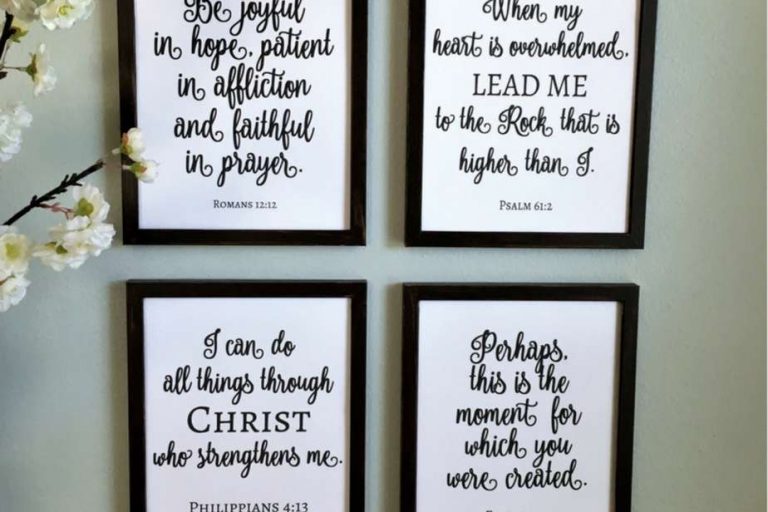 Be joyful
in hope, patient
in affliction
and faithful
in prayer.
Romans 12:12
When my
heart is overwhelmed,
LEAD ME
to the Rock that is
higher than I.
Psalm 61:2
I can do
all things through
CHRIST
who strengthens me.
Philippians 4:13
Perhaps,
this is the
moment for
which you
were created.